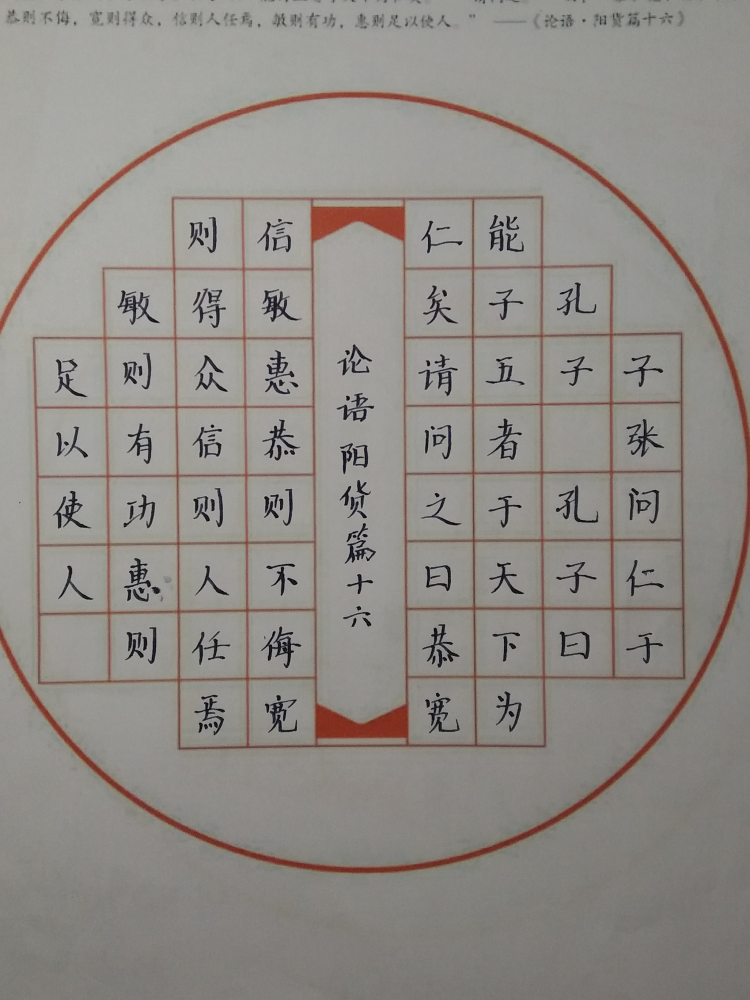 恭则不侮，宽则得众，信则人任焉，敏则有功，惠则足以使人。” ——《论语·阳货篇十六》
子张问仁于
孔子 孔子曰
能子五者于天下为
仁矣请问之曰恭宽
论语阳货篇十六
信敏惠恭则不侮宽
则得众信则人任焉
敏则有功惠则
足以使人